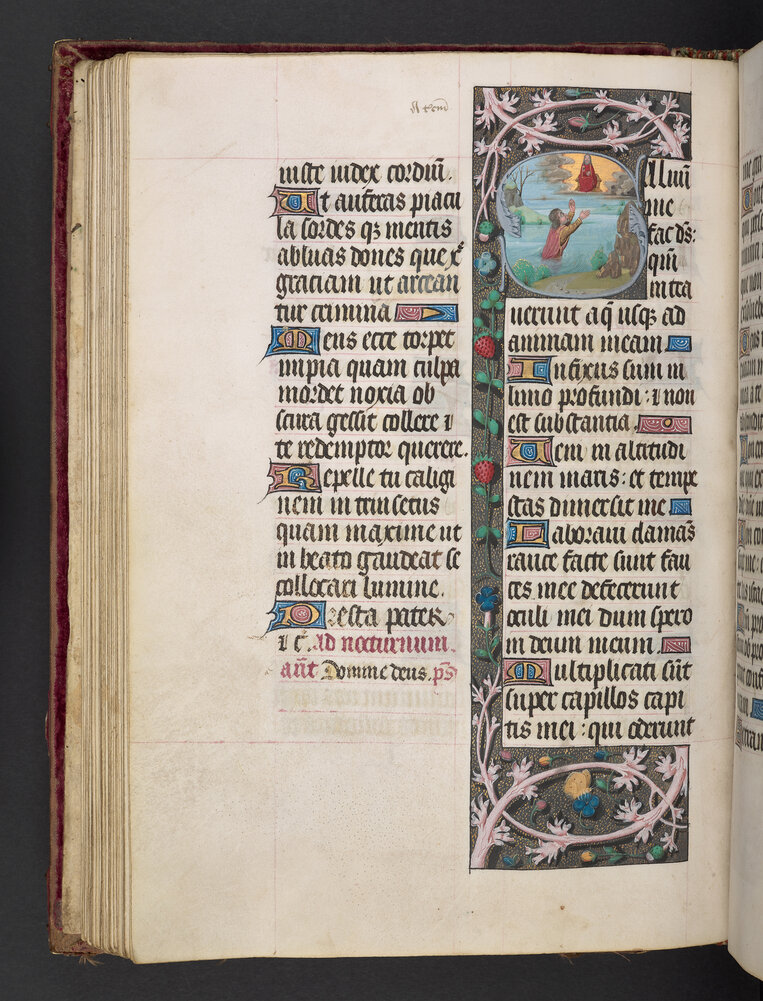 iuste iudex cordiū.
Ut auferas piacu
la sordes qꝫ mentis
abluas dones que xp̄e
graciam ut arcean
tur crimina
Mens ecce torpet
impia quam culpa
mordet noxia ob
scura gestit tollere ⁊
te redemptor querere.
Repelle tu caligi
nem intrinsecus
quam maxime ut
in beato gaudeat se
collocari lumine.
Presta pater
⁊ c̄. ad nocturnum.
an̄t Domine deus. ps̄
Aluū
me
fac ds̄:
qm̄
intra
uerunt aq̄ usqꝫ ad
animam meam
Infixus sum in
limo profundi: ⁊ non
est substantia.
Ueni in altitudi
nem maris: et tempe
stas dimersit me
Laboraui clamās
rauce facte sunt fau
ces mee defecerunt
oculi mei dum spero
in deum meum.
Multiplicati sūt
super capillos capi
tis mei: qui oderunt